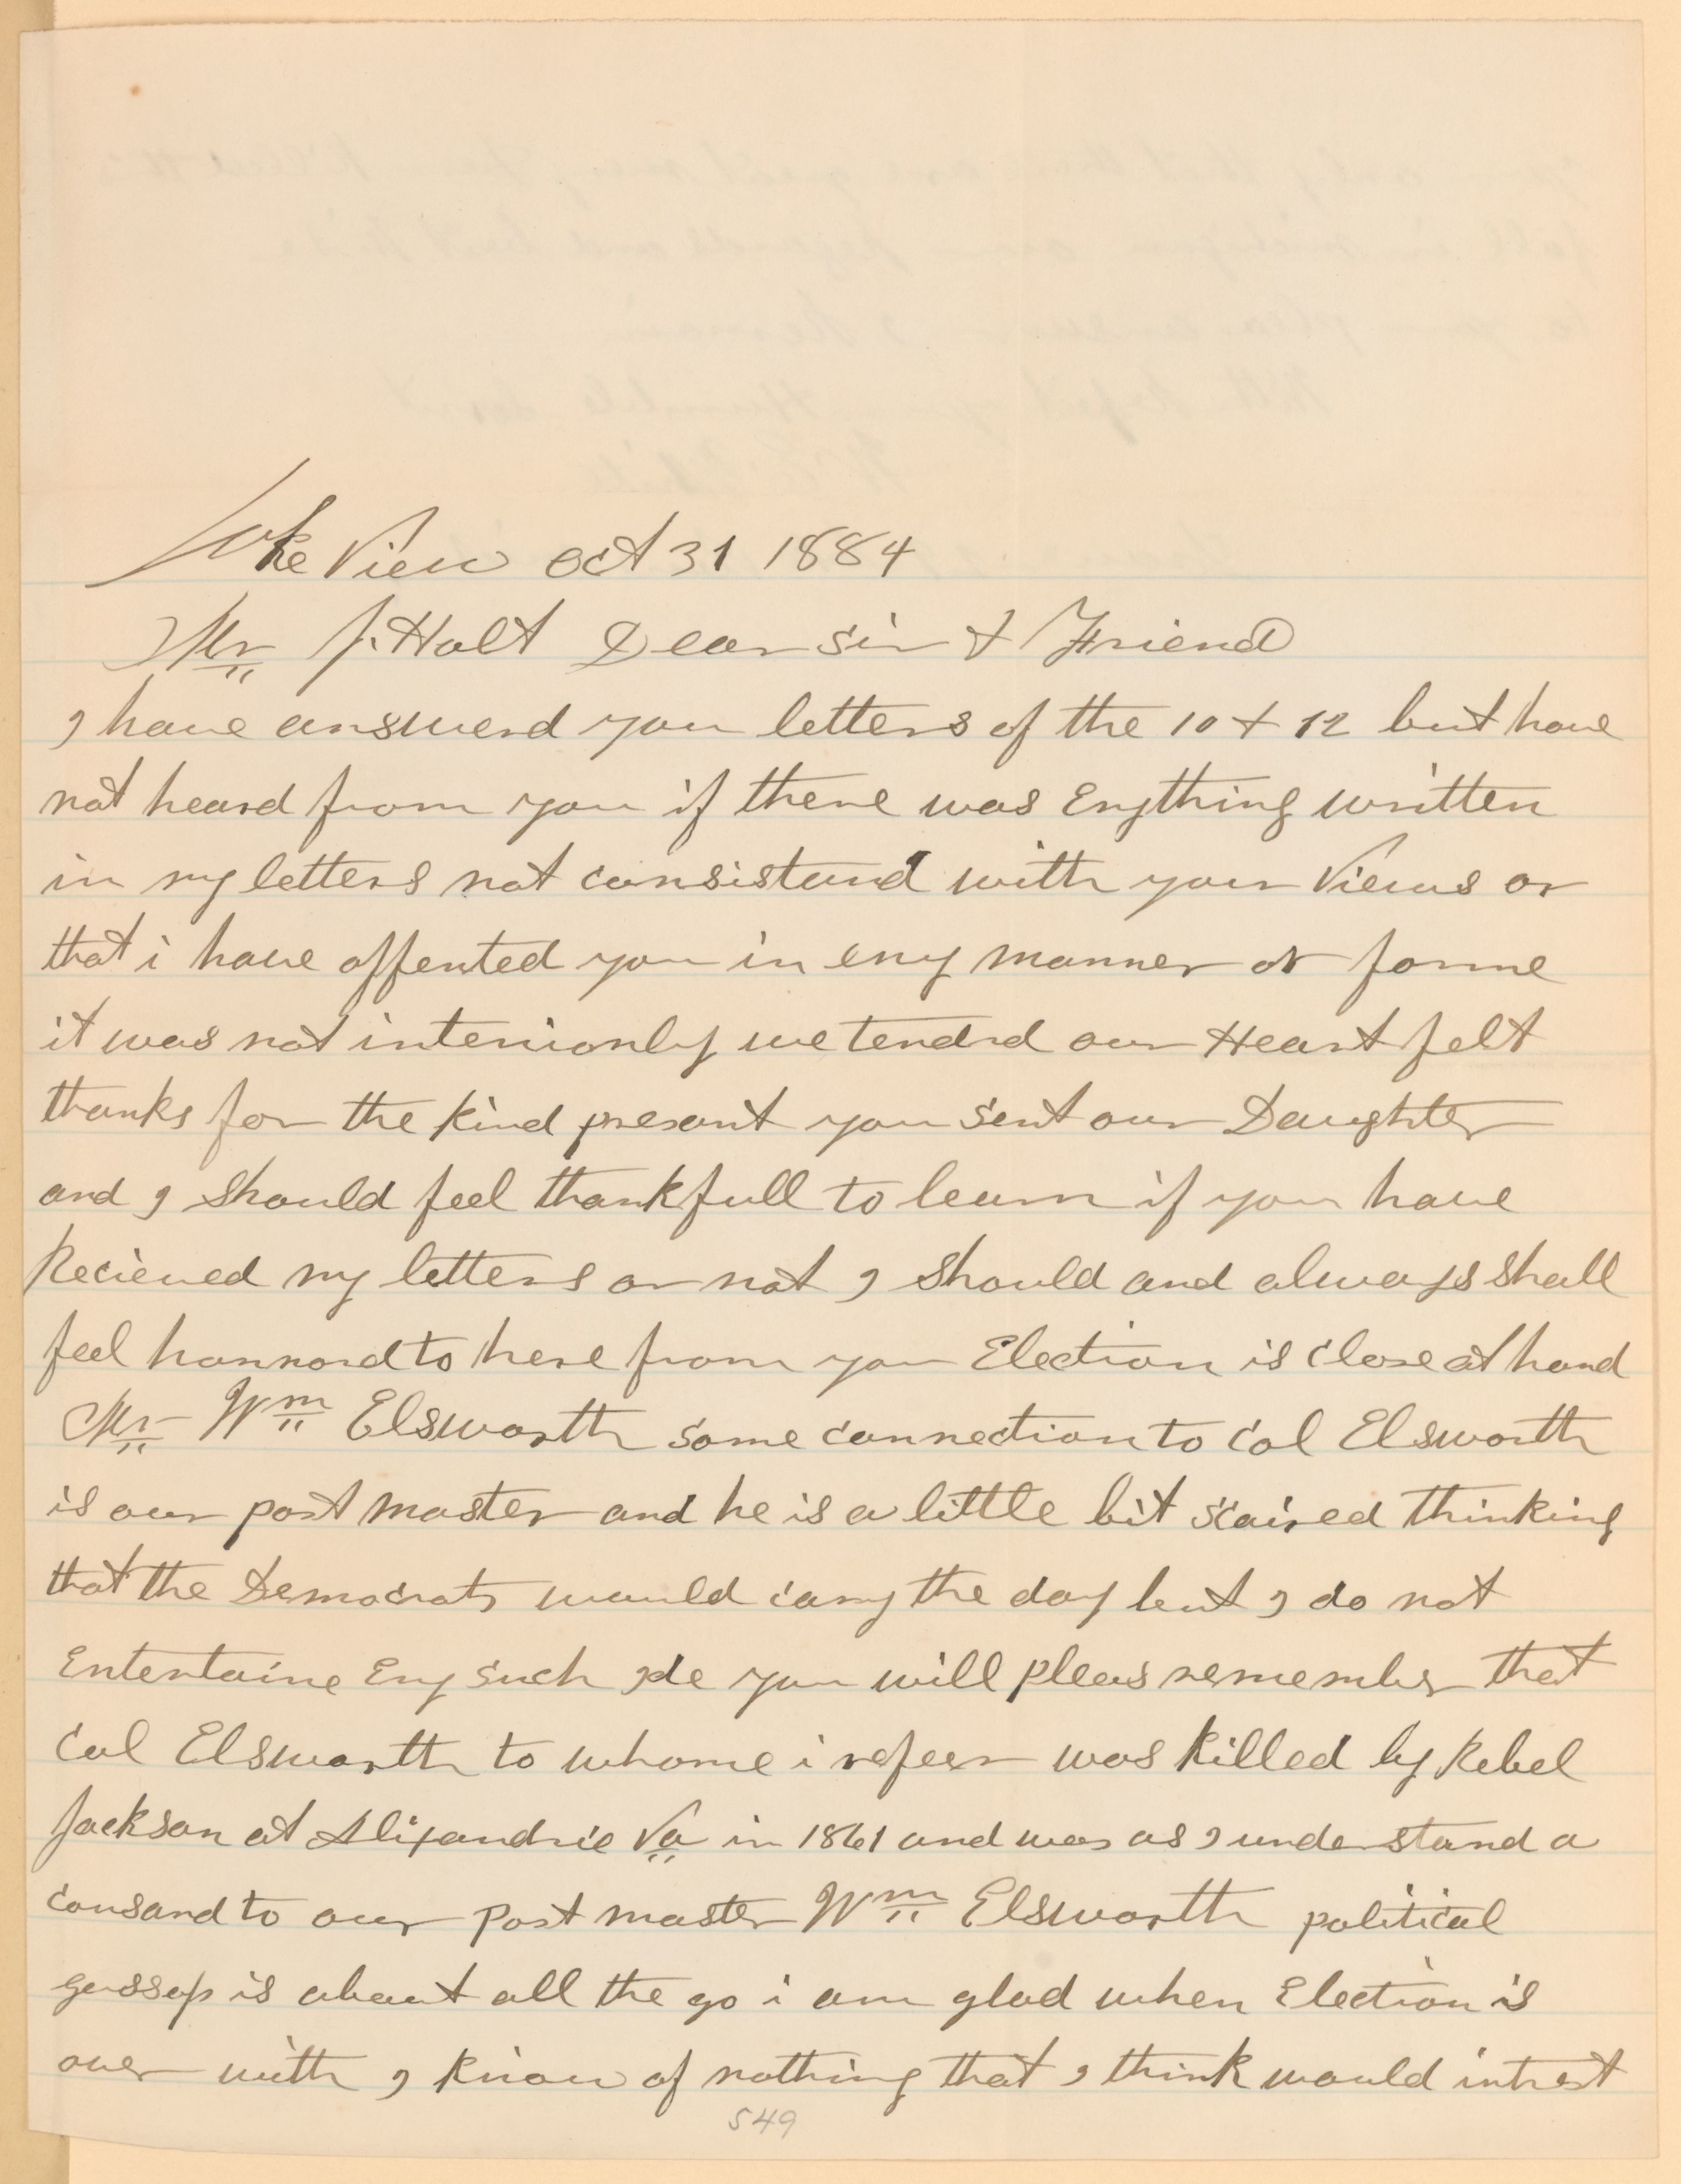 Lake View Oct 31 1884
Mr J. Holt Dear sir & Friend
I have answerd you letters of the 10 & 12 but have
not heard from you if there was Enything written
in my letters not consistand with your Views or
that i have offented you in eny manner or forme
it was not intenionly we tenderd our Heart felt
thanks for the kind presant you sent our Daughter
and I should feel thankfull to learn if you have
Recieved my letters or not I should and always shall
feel honnord to here from you Election is close at hand
Mr Wm Elsworth some connection to Col Elsworth
is our post master and he is a little bit scaired thinking
that the Democrats would carry the day but I do not
Entertaine Eny such Ide you will pleas remember that
Col Elsworth to whome i refeer was killed by Rebel
Jackson at Alixandrie Va in 1861 and was as I understand a
cousand to our Post master Wm Elsworth political
gossep is about all the go i am glad when Election is
over with I know of nothing that I think would intrest
549